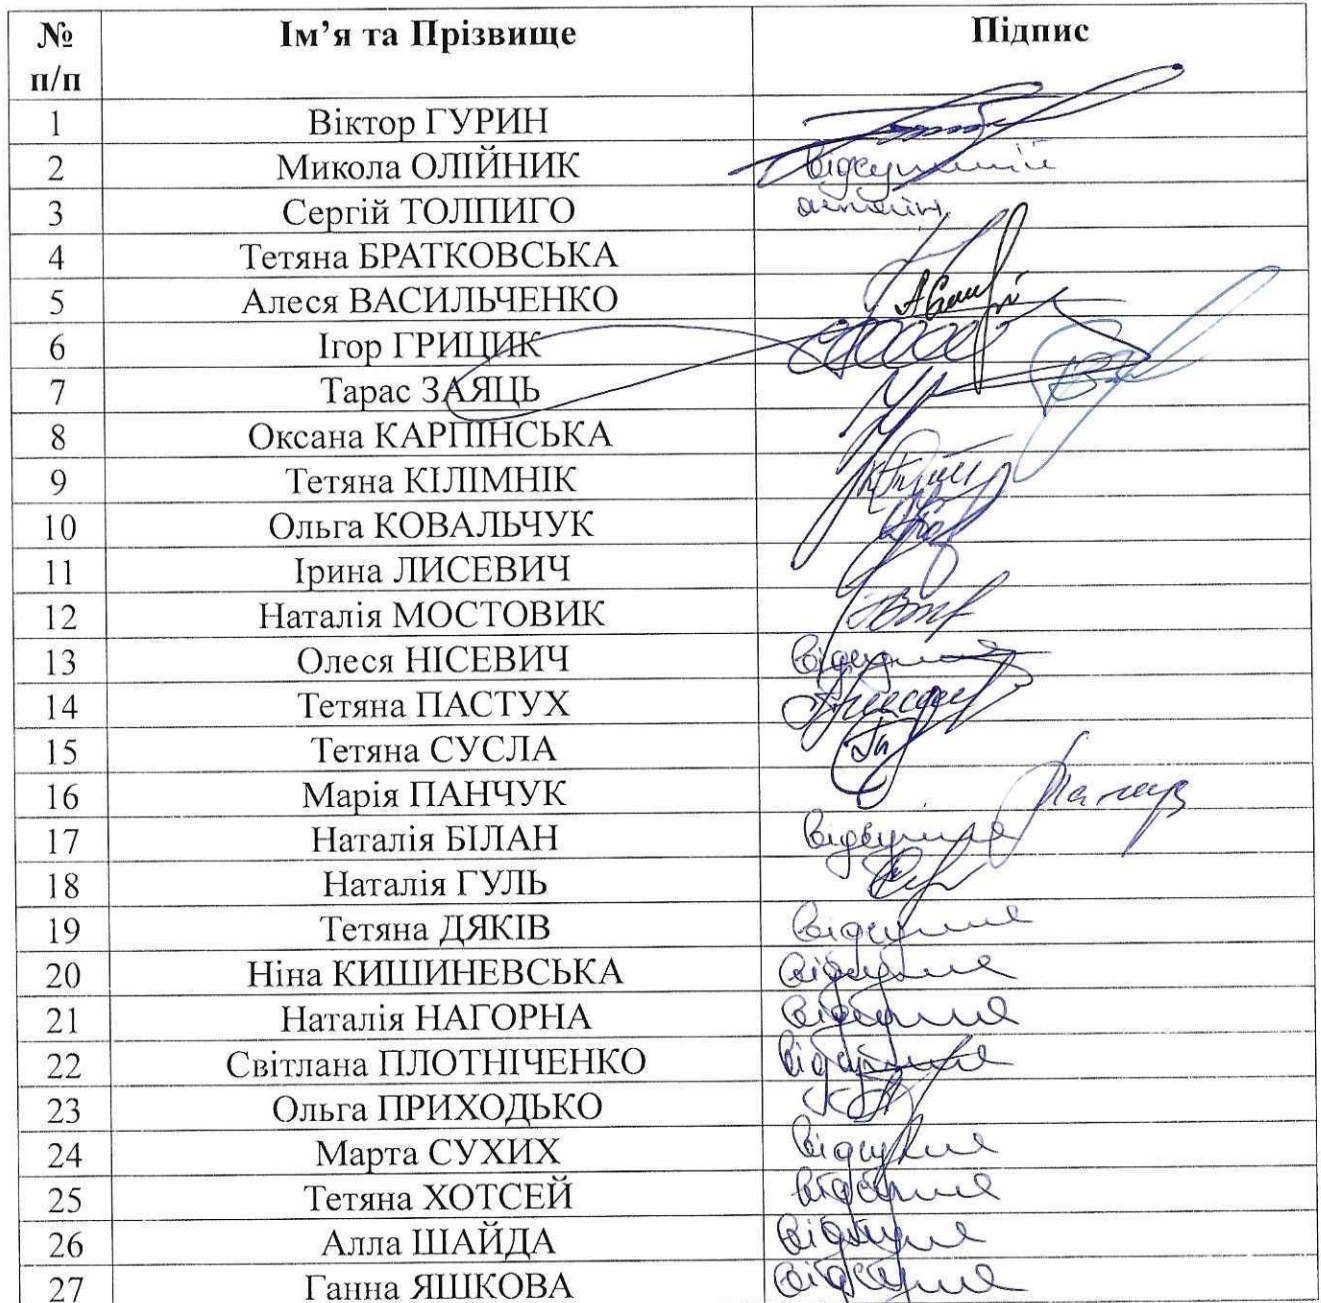 № п/п Ім’я та Прізвище Підпис
1 Віктор ГУРИН
2 Микола ОЛІЙНИК відсутній
3 Сергій ТОЛПИГО онлайн
4 Тетяна БРАТКОВСЬКА
5 Алеся ВАСИЛЬЧЕНКО
6 Ігор ГРИЦИК
7 Тарас ЗАЯЦЬ
8 Оксана КАРПІНСЬКА
9 Тетяна КІЛІМНІК
10 Ольга КОВАЛЬЧУК
11 Ірина ЛИСЕВИЧ
12 Наталія МОСТОВИК
13 Олеся НІСЕВИЧ відсутня
14 Тетяна ПАСТУХ
15 Тетяна СУСЛА
16 Марія ПАНЧУК
17 Наталія БІЛАН відсутня
18 Наталія ГУЛЬ
19 Тетяна ДЯКІВ відсутня
20 Ніна КИШИНЕВСЬКА відсутня
21 Наталія НАГОРНА відсутня
22 Світлана ПЛОТНІЧЕНКО відсутня
23 Ольга ПРИХОДЬКО
24 Марта СУХИХ відсутня
25 Тетяна ХОТСЕЙ відсутня
26 Алла ШАЙДА відсутня
27 Ганна ЯШКОВА відсутня